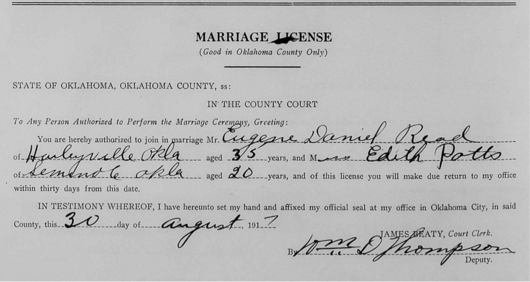 MARRIAGE LICENSE
(Good in Oklahoma County Only)
STATE OF OKLAHOMA, OKLAHOMA COUNTY, ss:
IN THE COUNTY COURT
To Any Person Authorized to Perform the Marriage Ceremony, Greeting:
You are hereby authorized to join in marriage Mr. Eugene Daniel Read
of Harleyville Okla aged 35 years, and Miss Edith Potts
of Okla aged 20 years, and of this license you will make due return to my office
within thirty days from this date.
IN TESTIMONY WHEREOF, I have hereunto set my hand and affixed my official seal at my office in Oklahoma City, in said
County, this 30 day of August, 1917
JAMES BEATY, Court Clerk.
By Wm D Thompson
Deputy.